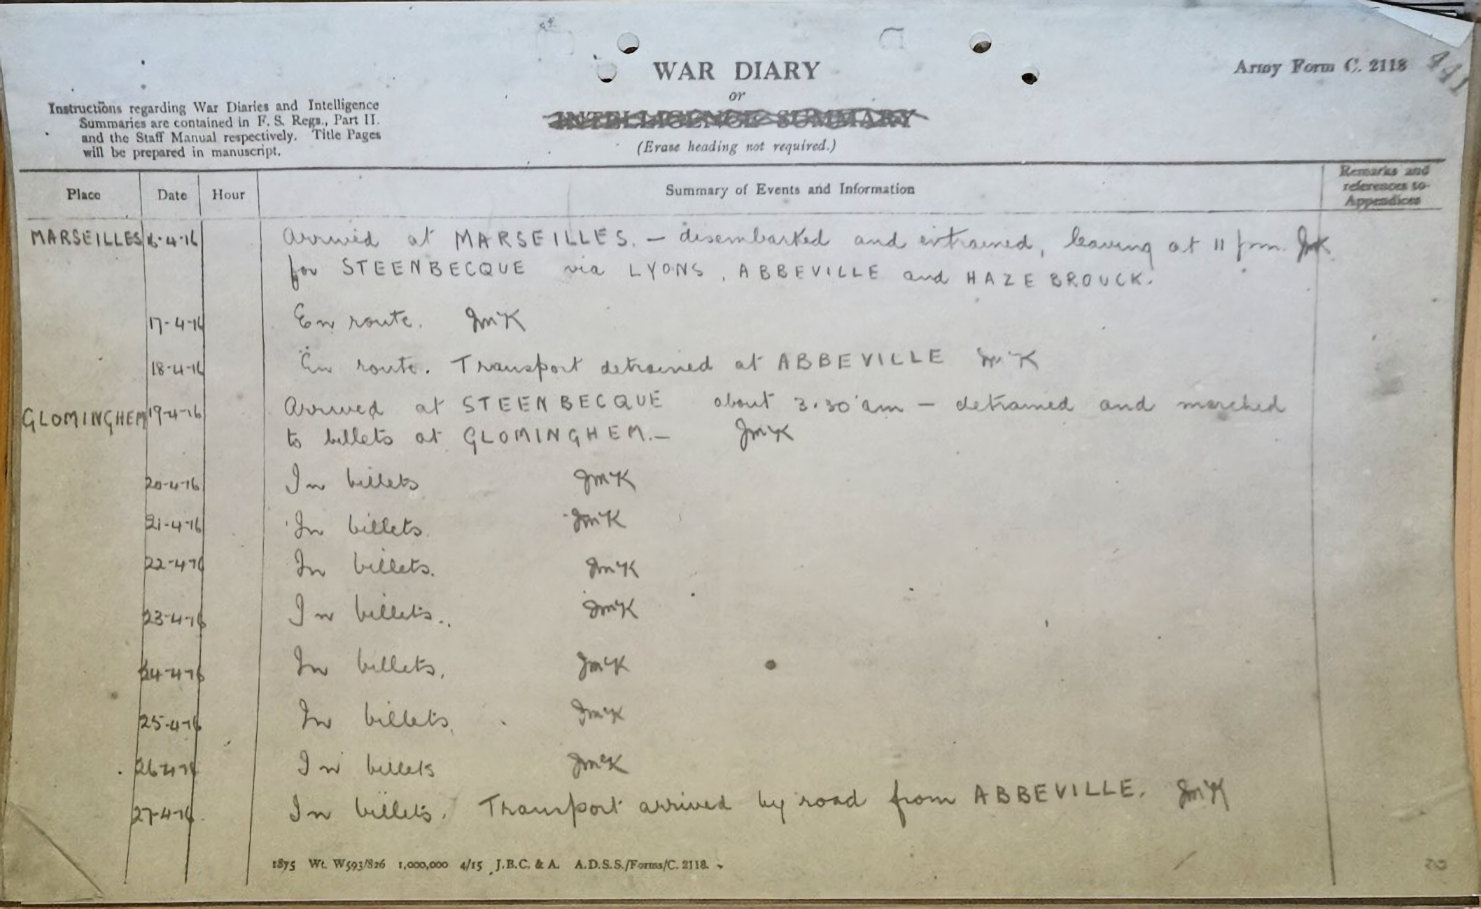 WAR DIARY
or
INTELLIGENCE SUMMARY
(Erase heading not required.)
Army Form C. 2118
Instructions regarding War Diaries and Intelligence
Summaries are contained in F. S. Regs., Part II.
and the Staff Manual respectively. Title Pages
will be prepared in manuscript.
Place Date Hour Summary of Events and Information Remarks and
references to
Appendices
MARSEILLES 16-4-16 Arrived at MARSEILLES. — disembarked and entrained, leaving at 11 pm. JMcK
for STEENBECQUE via LYONS, ABBEVILLE and HAZEBROUCK.
17-4-16 En route. JMcK
18-4-16 En route. Transport detrained at ABBEVILLE JMcK
GLOMINGHEM 19-4-16 Arrived at STEENBECQUE about 3.30 am — detrained and marched
to billets at GLOMINGHEM. — JMcK
20-4-16 In billets JMcK
21-4-16 In billets. JMcK
22-4-16 In billets. JMcK
23-4-16 In billets. JMcK
24-4-16 In billets. JMcK
25-4-16 In billets. JMcK
26-4-16 In billets JMcK
27-4-16 In billets. Transport arrived by road from ABBEVILLE. JMcK
1875 Wt. W593/826 1,000,000 4/15 J.B.C. & A. A.D.S.S./Forms/C. 2118.